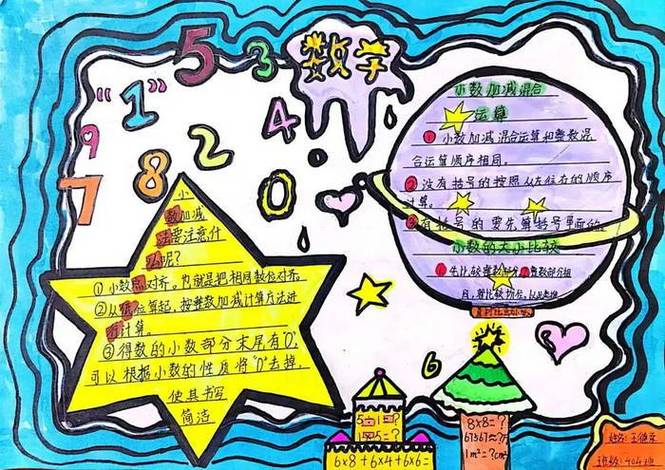 数学
5
3
"1"
4
9
2
8
7
0
6
小
数加减
法要注意什
么呢?
①小数点对齐。也就是把相同数位对齐。
②从低位算起,按整数加减计算方法进
行计算。
③得数的小数部分末尾有"0",
可以根据小数的性质将"0"去掉,
使其书写
简洁
小数加减混合
运算
①小数加减混合运算和整数混
合运算顺序相同。
②没有括号的按照从左往右的顺序
计算。
③有括号的要先算括号里面的。
小数的大小比较
①先比较整数部分②整数部分相
同,
8×8=?
1m²=?cm²
6×8+6×4+6×6=
姓名:王
班级:404班